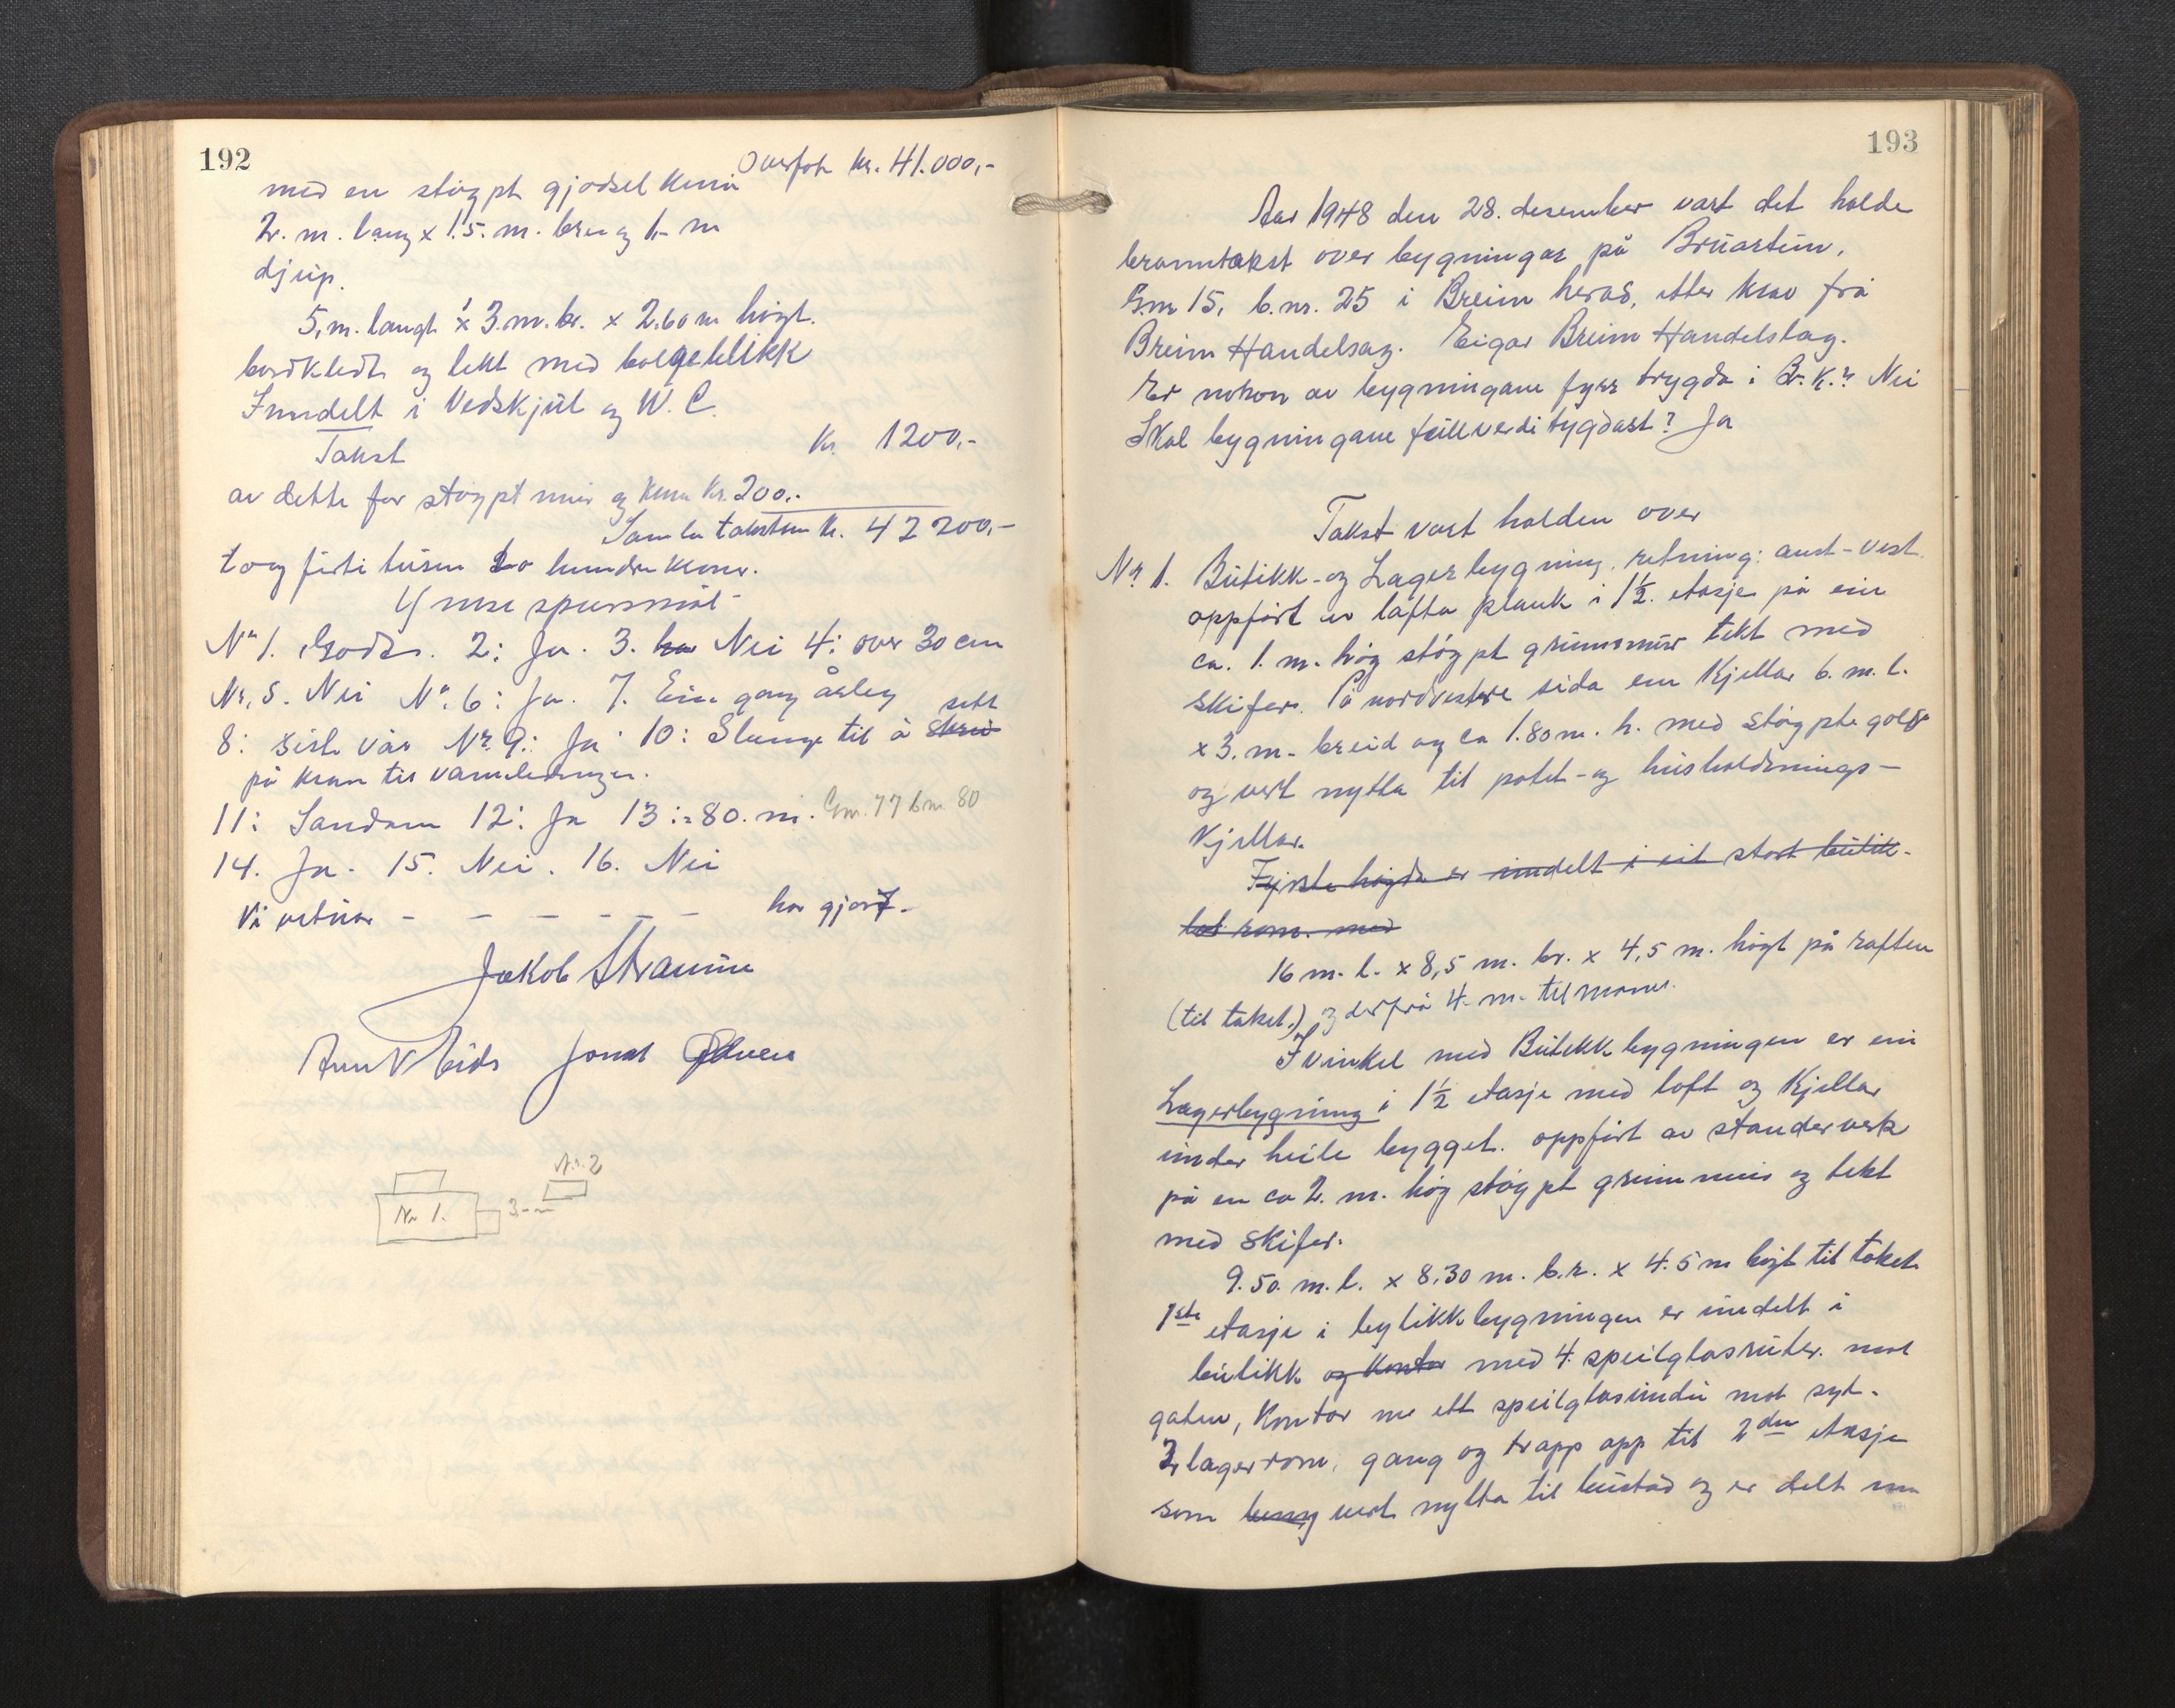 192
Overført kr. 41.000,-
med en støypt gjødsel kum
2. m. lang x 1.5. m. brei og 1,- m
djup.
5, m. langt x 3. m. br. x 2.60 m høgt.
bordkledt og tekt med bølgeblikk
Inndelt i Vedskjul og W.C.
Takst kr. 1200,-
av dette for støypt mur og kum kr. 200,-
Samla taksten kr. 42200,-
to og førti tusen to hundre kroner.
Ymse spursmål
Nr 1. Godt. 2: Ja. 3. Nei 4: over 30 cm
Nr. 5. Nei Nr. 6: Ja. 7. Ein gang årleg
8: siste vår Nr. 9: Ja 10: Slange til å skru sett
på kran til vannledningen.
11: Sandane 12: Ja 13: 80. m. Gnr. 77 bnr 80
14. Ja. 15. Nei. 16. Nei
Vi vitnar - - - - - - har gjort-
Jakob Straume
Eide Jonat
Nr. 2
Nr 1. 3-m
193
Aar 1948 den 28. desember vart det halde
branntakst over bygningar på Bruartun,
Gnr 15, b.nr. 25 i Breim herad, etter krav frå
Breim Handelsag. Eigar Breim Handelslag.
Er nokon av bygningane fyrr trygda i Br.K.? Nei
Skal bygningane fullverdi tygdast? Ja
Takst vart halden over
Nr 1. Butikk- og Lagerbygning, retning: aust-vest
oppført av lafta plank i 1½ etasje på ein
ca. 1. m. høg støypt grunnmur tekt med
skifer. På nordvestre sida en Kjellar 6. m. l.
x 3. m. breid og ca 1.80 m. h. med støypte golv
og vert nytta til potet- og husholdnings-
Kjellar.
Fyrste høgda er inndelt i eit stort butik-
rom. med
16 m. l. x 8,5 m. br. x 4,5 m. høgt på raften
(til taket.) og derfrå 4. m. til mønet.
I vinkel med Butikkbygningen er ein
Lagerbygning i 1½ etasje med loft og Kjellar
under heile bygget. oppført av standerverk
på en ca 2. m. høg støypt grunnmur og tekt
med skifer.
9.50. m. l. x 8.30 m. b.r. x 4.5 m høgt til taket.
1ste etasje i bytikkbygningen er inndelt i
butikk og kontor med 4. speilglasruter. mot
gaten, Kontor me ett speilglasvindu mot syd.
2 lagerrom, gang og trapp opp til 2den etasje
som vert nytta til bustad og er delt inn